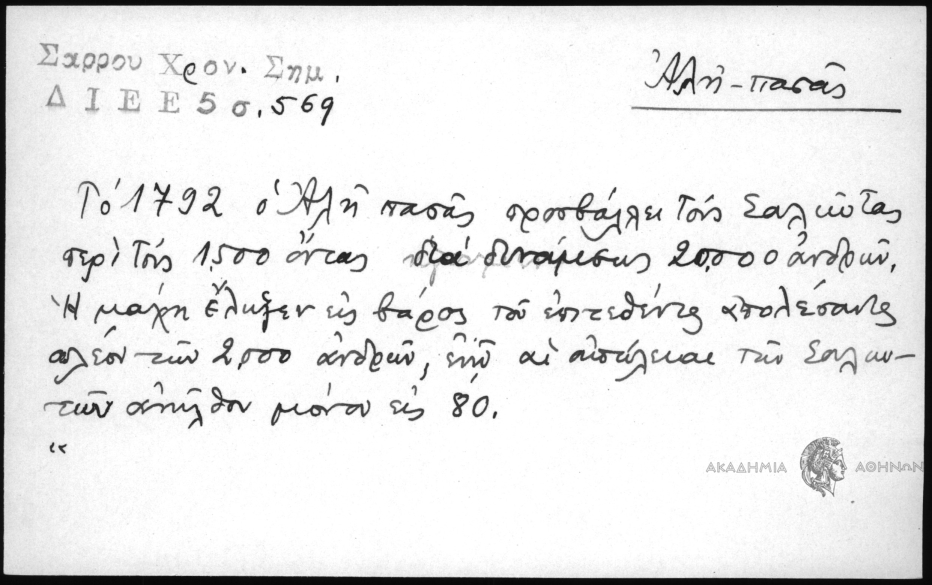 Σαρρου Χρον. Σημ.
Δ Ι Ε Ε 5 σ. 569
Ἀλῆ-πασᾶς
Τό 1792 ὁ Ἀλῆ πασᾶς προσβάλλει τούς Σουλιώτας
περί τούς 1.500 ὄντας διά δυνάμεως 20.000 ἀνδρῶν.
Ἡ μάχη ἔληξεν εἰς βάρος τοῦ ἐπιτεθέντος ἀπολέσαντος
πλέον τῶν 2.000 ἀνδρῶν, ἐνῷ αἱ ἀπώλειαι τῶν Σουλιω-
τῶν ἀνῆλθον μόνον εἰς 80.
"
ΑΚΑΔΗΜΙΑ ΑΘΗΝΩΝ